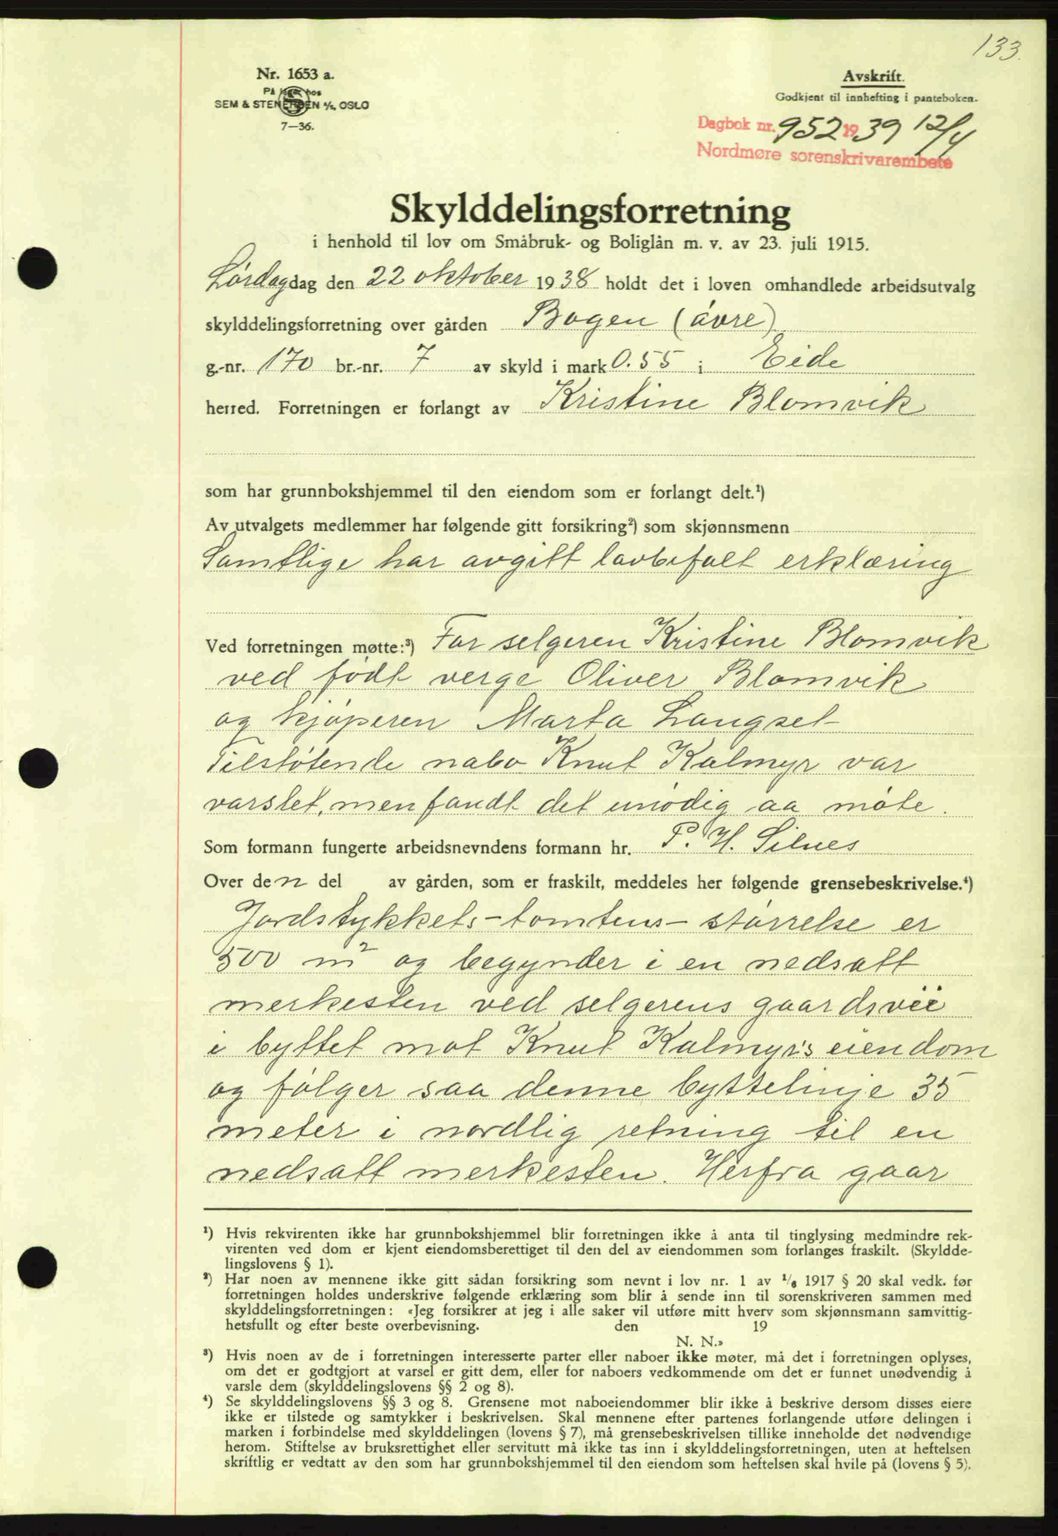 133.
Nr. 1653 a.
På lager hos
SEM & STENERSEN A/S, OSLO
7—36.
Avskrift.
Godkjent til innhefting i panteboken.
Dagbok nr. 952 1939 12/4
Nordmøre sorenskrivarembete
Skylddelingsforretning
i henhold til lov om Småbruk- og Boliglån m. v. av 23. juli 1915.
Lørdag dag den 22 oktober 1938 holdt det i loven omhandlede arbeidsutvalg
skylddelingsforretning over gården Bogen (øvre)
g.-nr. 170 br.-nr. 7 av skyld i mark 0.55 i Eide
herred. Forretningen er forlangt av Kristine Blomvik
som har grunnbokshjemmel til den eiendom som er forlangt delt.¹)
Av utvalgets medlemmer har følgende gitt forsikring²) som skjønnsmenn
Samtlige har avgitt lovbefalt erklæring
Ved forretningen møtte:³) For selgeren Kristine Blomvik
ved født verge Oliver Blomvik
og kjøperen Marta Langset
Tilstøtende nabo Knut Kalmyr var
varslet, men fandt det unødig aa møte.
Som formann fungerte arbeidsnevndens formann hr. P. H. Silnes
Over den del av gården, som er fraskilt, meddeles her følgende grensebeskrivelse.⁴)
Jordstykkets - tomtens - størrelse er
500 m² og begynder i en nedsatt
merkesten ved selgerens gaardsvei
i byttet mot Knut Kalmyr's eiendom
og følger saa denne byttelinje 35
meter i nordlig retning til en
nedsatt merkesten. Herfra gaar
¹) Hvis rekvirenten ikke har grunnbokshjemmel blir forretningen ikke å anta til tinglysing medmindre rek-
virenten ved dom er kjent eiendomsberettiget til den del av eiendommen som forlanges fraskilt. (Skyldde-
lingslovens § 1).
²) Har noen av mennene ikke gitt sådan forsikring som nevnt i lov nr. 1 av 1/6 1917 § 20 skal vedk. før
forretningen holdes underskrive følgende erklæring som blir å sende inn til sorenskriveren sammen med
skylddelingsforretningen: «Jeg forsikrer at jeg i alle saker vil utføre mitt hverv som skjønnsmann samvittig-
hetsfullt og efter beste overbevisning. den 19
N. N.»
³) Hvis noen av de i forretningen interesserte parter eller naboer ikke møter, må det i forretningen oplyses,
om det er godtgjort at varsel er gitt dem, eller for naboers vedkommende om det er funnet unødvendig å
varsle dem (skylddelingslovens §§ 2 og 8).
⁴) Se skylddelingslovens §§ 3 og 8. Grensene mot naboeiendommer blir ikke å beskrive dersom disses eiere
ikke er tilstede og samtykker i beskrivelsen. Skal mennene efter partenes forlangende utføre delingen i
marken i forbindelse med skylddelingen (lovens § 7), må grensebeskrivelsen tillike inneholde det nødvendige
herom. Stiftelse av bruksrettighet eller servitutt må ikke tas inn i skylddelingsforretningen, uten at heftelsen
skriftlig er vedtatt av den som har grunnbokshjemmel til den eiendom som heftelsen skal hvile på (lovens § 5).